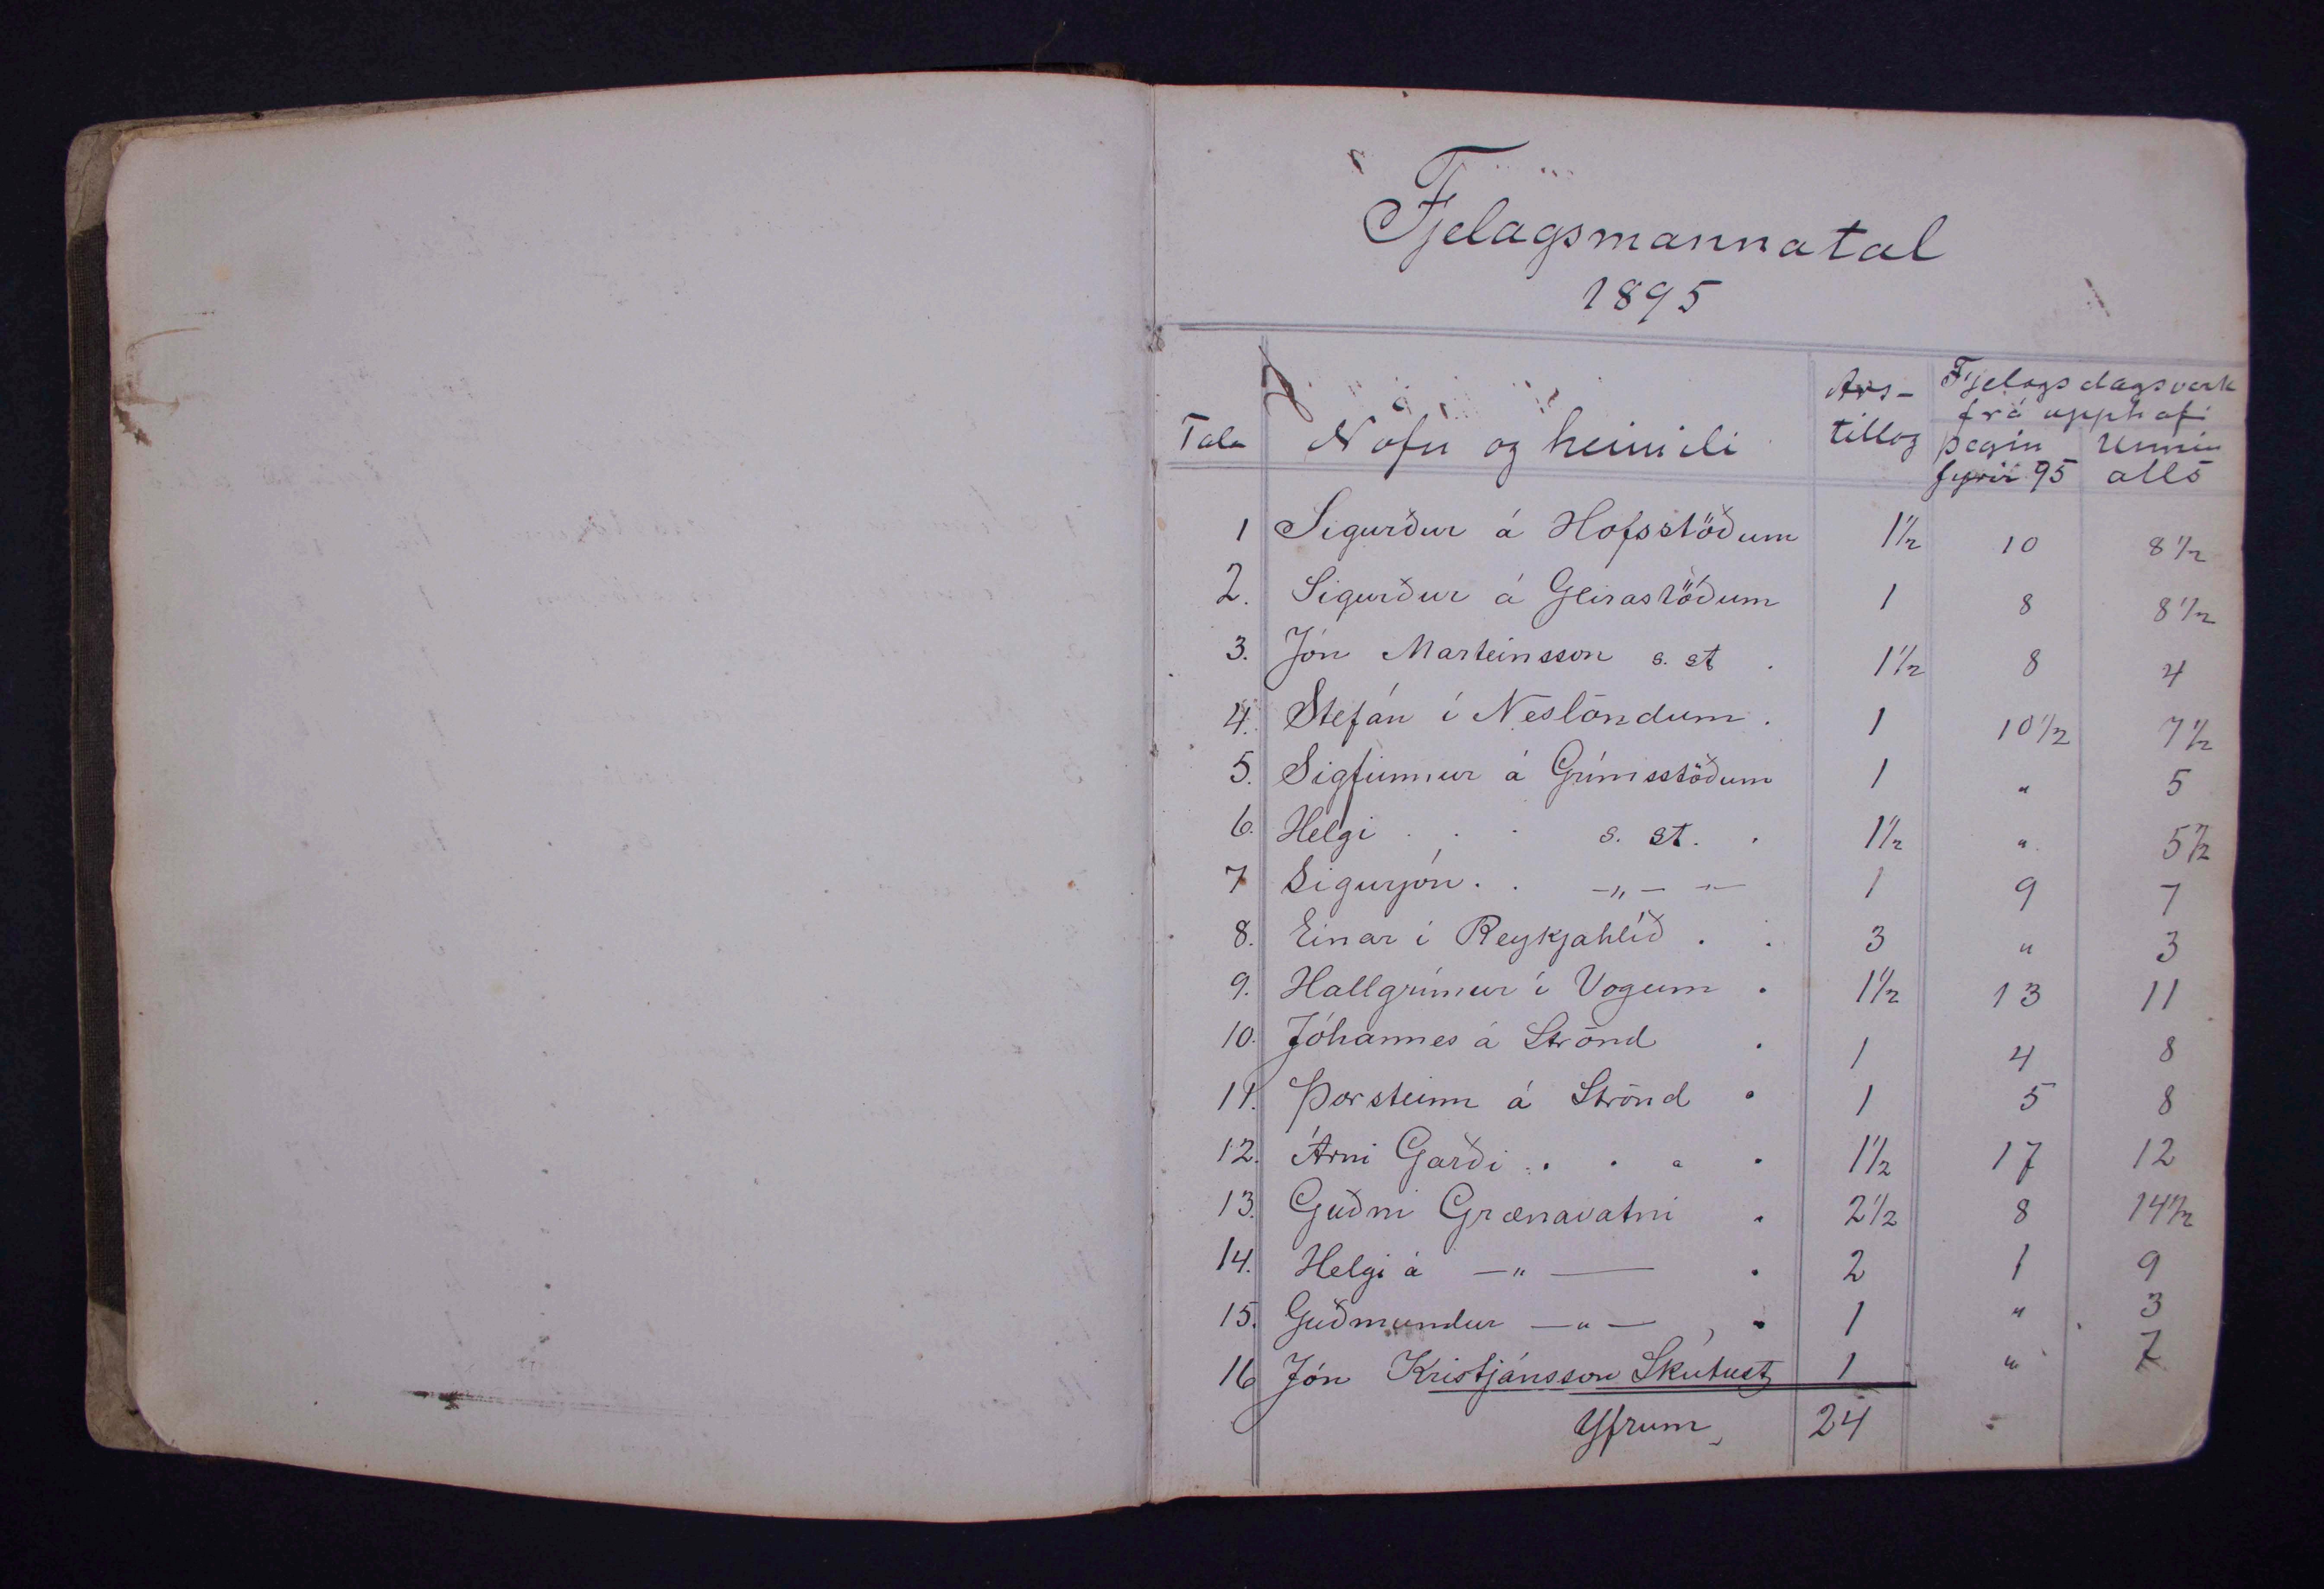 Fjelagsmannatal
1895
Tala Nöfn og heimili Árs- tillog Fjelags dagsverk frá upphafi þegin fyrir 95 Unnin alls
1 Sigurður á Hofsstöðum 1 1/2 10 8 1/2
2. Sigurður á Geirastöðum 1 8 8 1/2
3. Jón Marteinsson s. st . 1 1/2 8 4
4. Stefán í Neslöndum . 1 10 1/2 7 1/2
5. Sigfinnur á Grímsstöðum 1 " 5
6. Helgi . . . s. st. . 1 1/2 " 5 1/2
7 Sigurjón . . —"— "— 1 9 7
8. Einar í Reykjahlíð . . 3 " 3
9. Hallgrímur í Vogum . 1 1/2 13 11
10. Jóhannes á Strönd . 1 4 8
11. Þorsteinn á Strönd . 1 5 8
12. Árni Garði . . . . 1 1/2 17 12
13. Guðni Grænavatni . 2 1/2 8 14 1/2
14. Helgi á —"— . 2 1 9
15. Guðmundur —"— . 1 " 3
16 Jón Kristjánsson Skútust 1 " 7
Yfrum 24